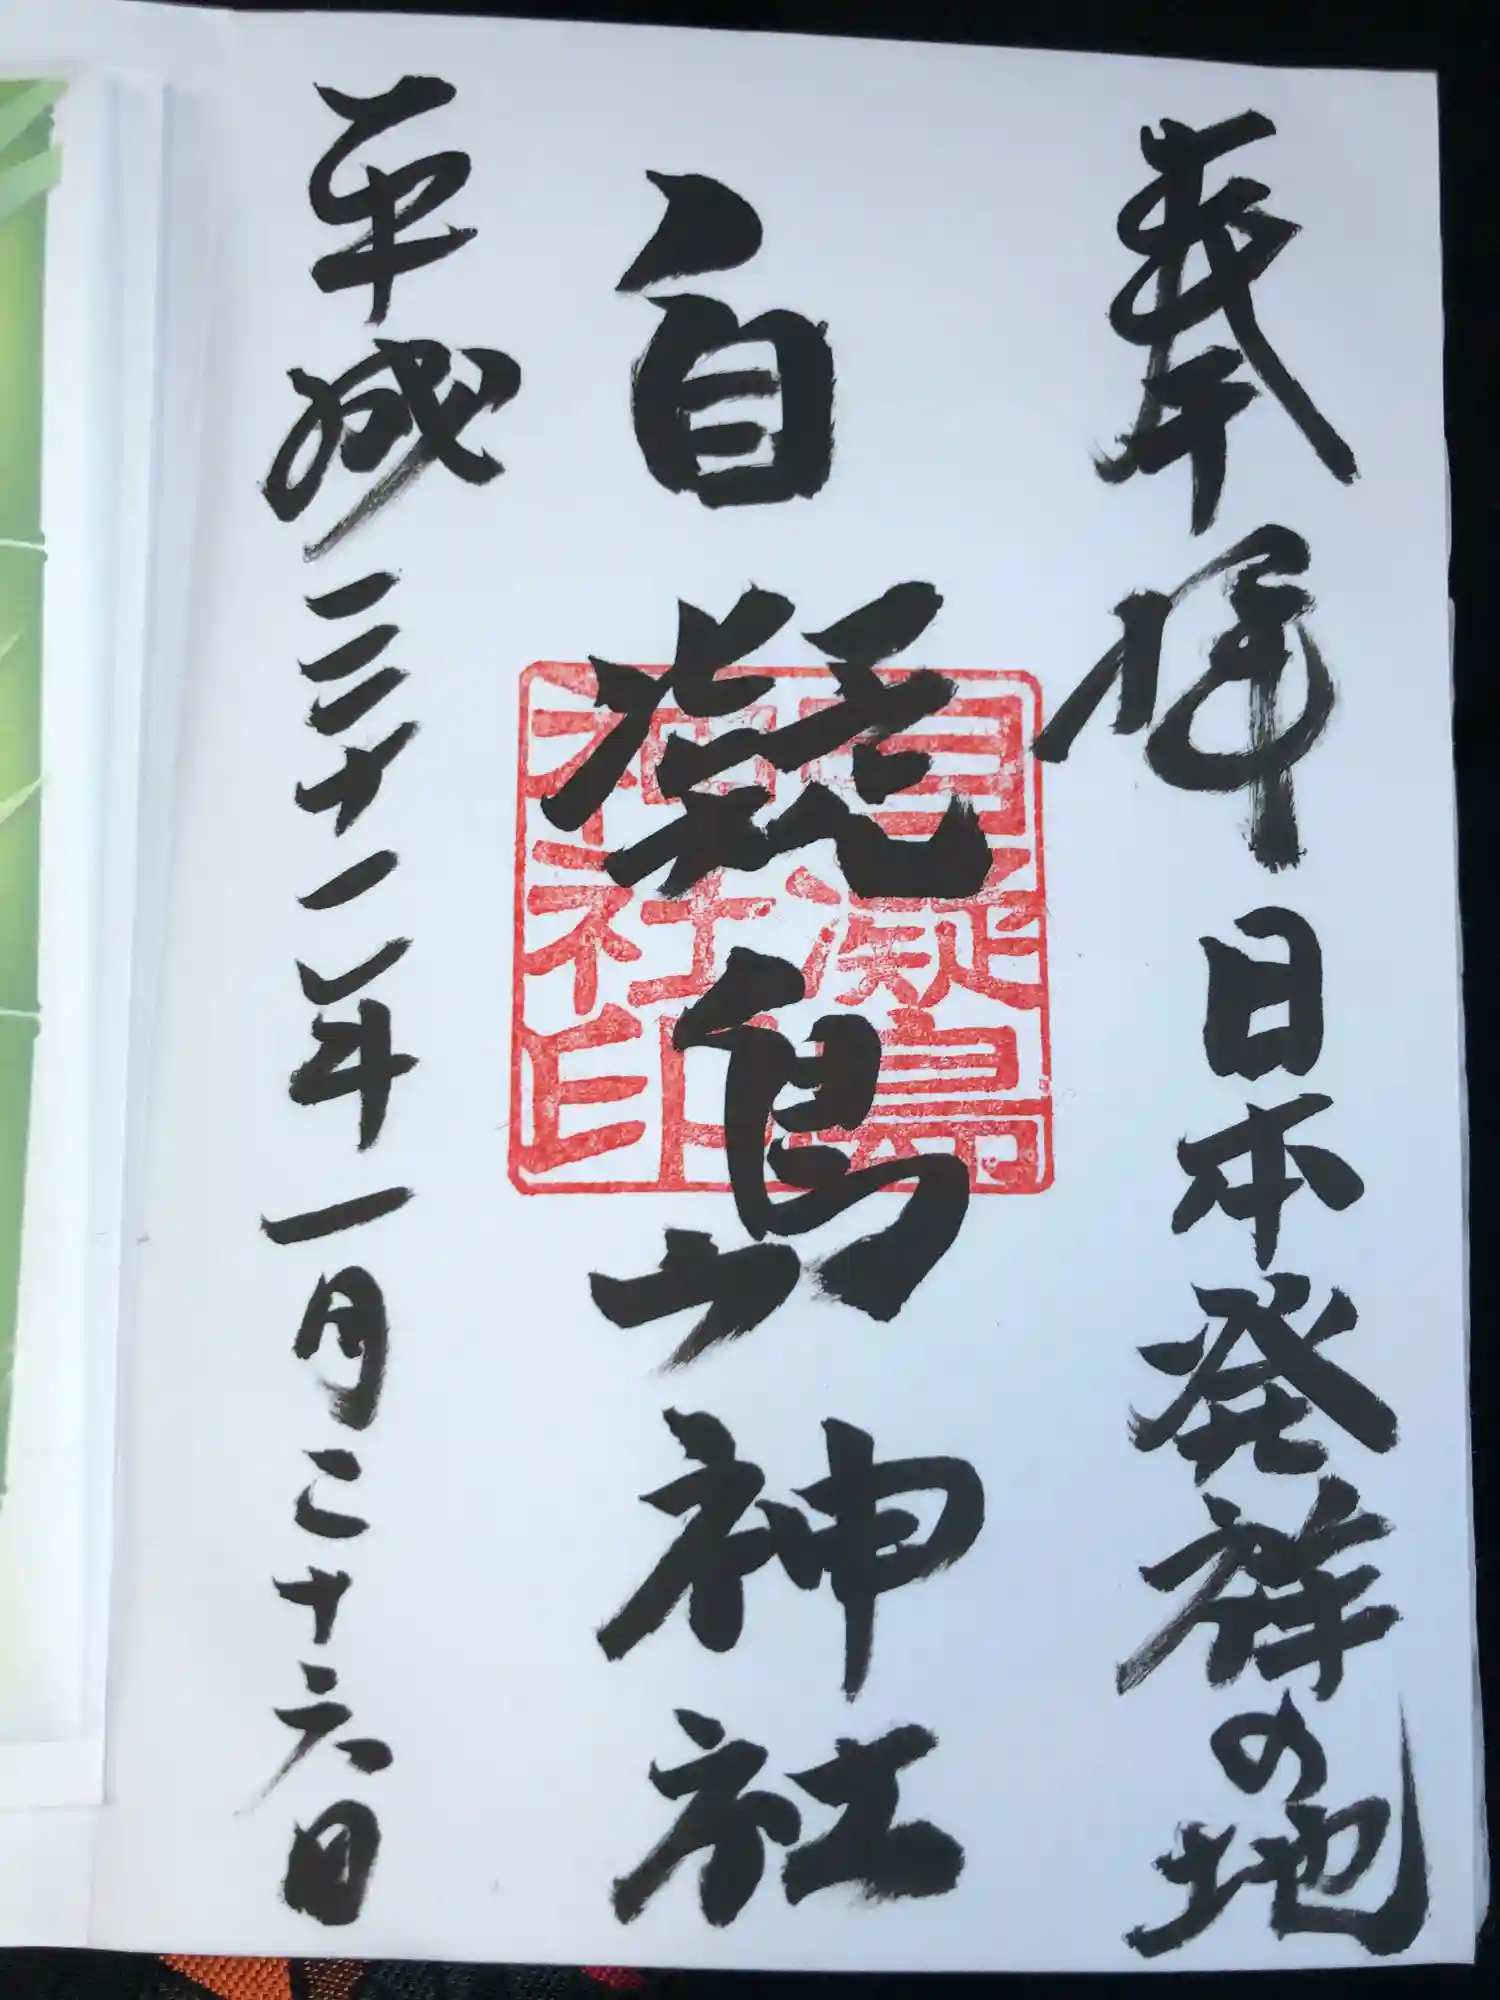 奉拝 日本発祥の地
自凝島神社
平成三十一年一月二十六日
自凝島
神社印